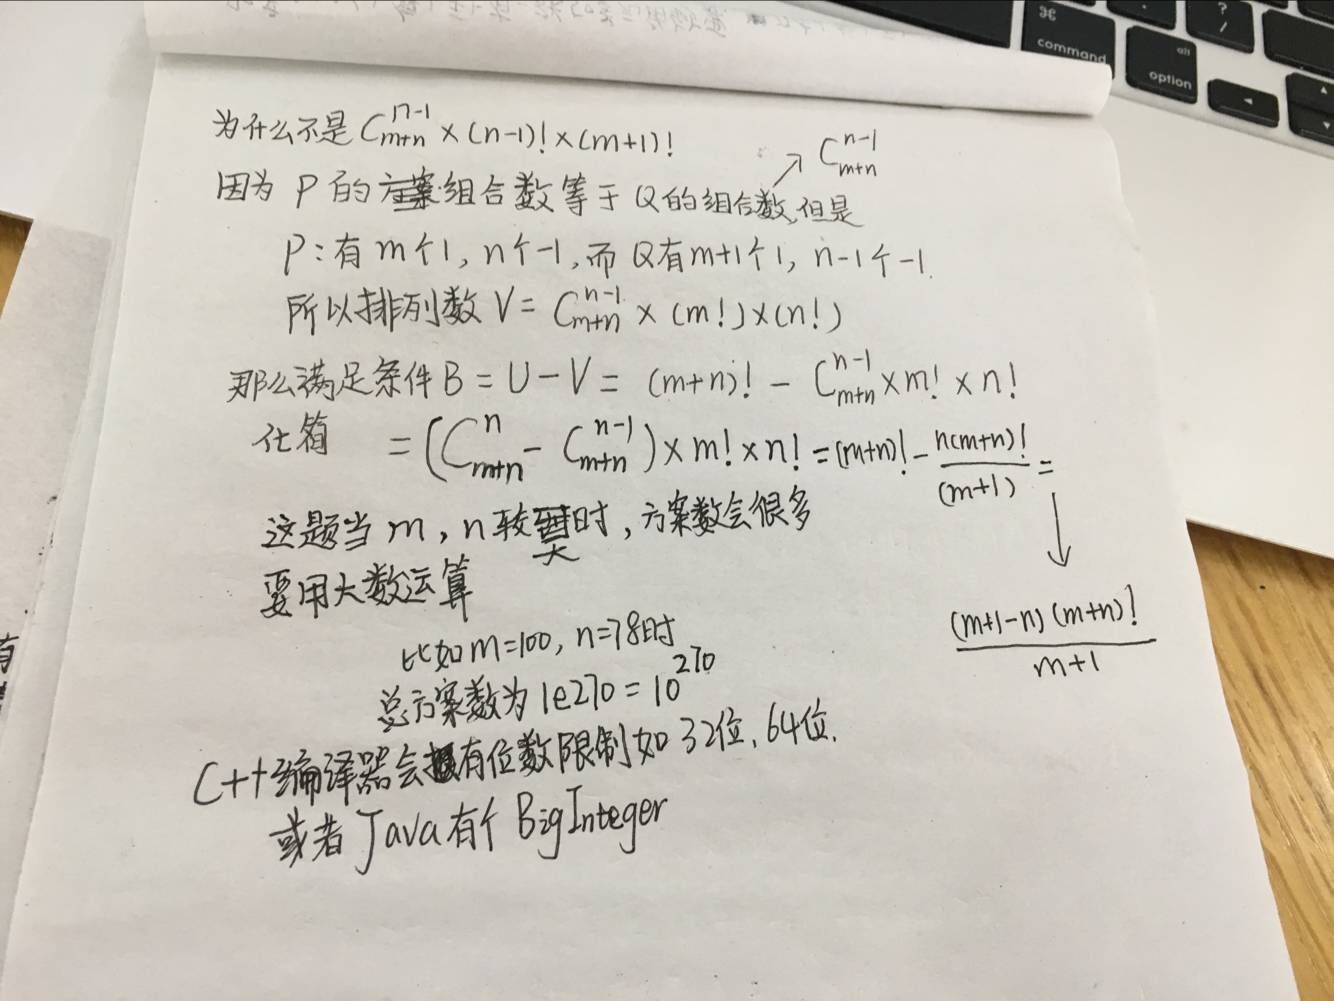 为什么不是 C_{m+n}^{n-1} × (n-1)! × (m+1)!
C_{m+n}^{n-1}
因为 P 的组合数等于 Q的组合数,但是
P:有 m个1, n个-1,而 Q有m+1个1, n-1个-1.
所以排列数 V = C_{m+n}^{n-1} × (m!)×(n!)
那么满足条件 B = U-V = (m+n)! - C_{m+n}^{n-1}×m!×n!
化简 = (C_{m+n}^{n} - C_{m+n}^{n-1})×m!×n! = (m+n)! - \frac{n(m+n)!}{(m+1)} =
这题当 m, n 较大时,方案数会很多
要用大数运算
\frac{(m+1-n)(m+n)!}{m+1}
比如 m=100, n=78时
总方案数为 1e270 = 10^{270}
C++编译器会有位数限制如 32位、64位.
或者 Java 有个 BigInteger
command
option
alt
⌘
?
/